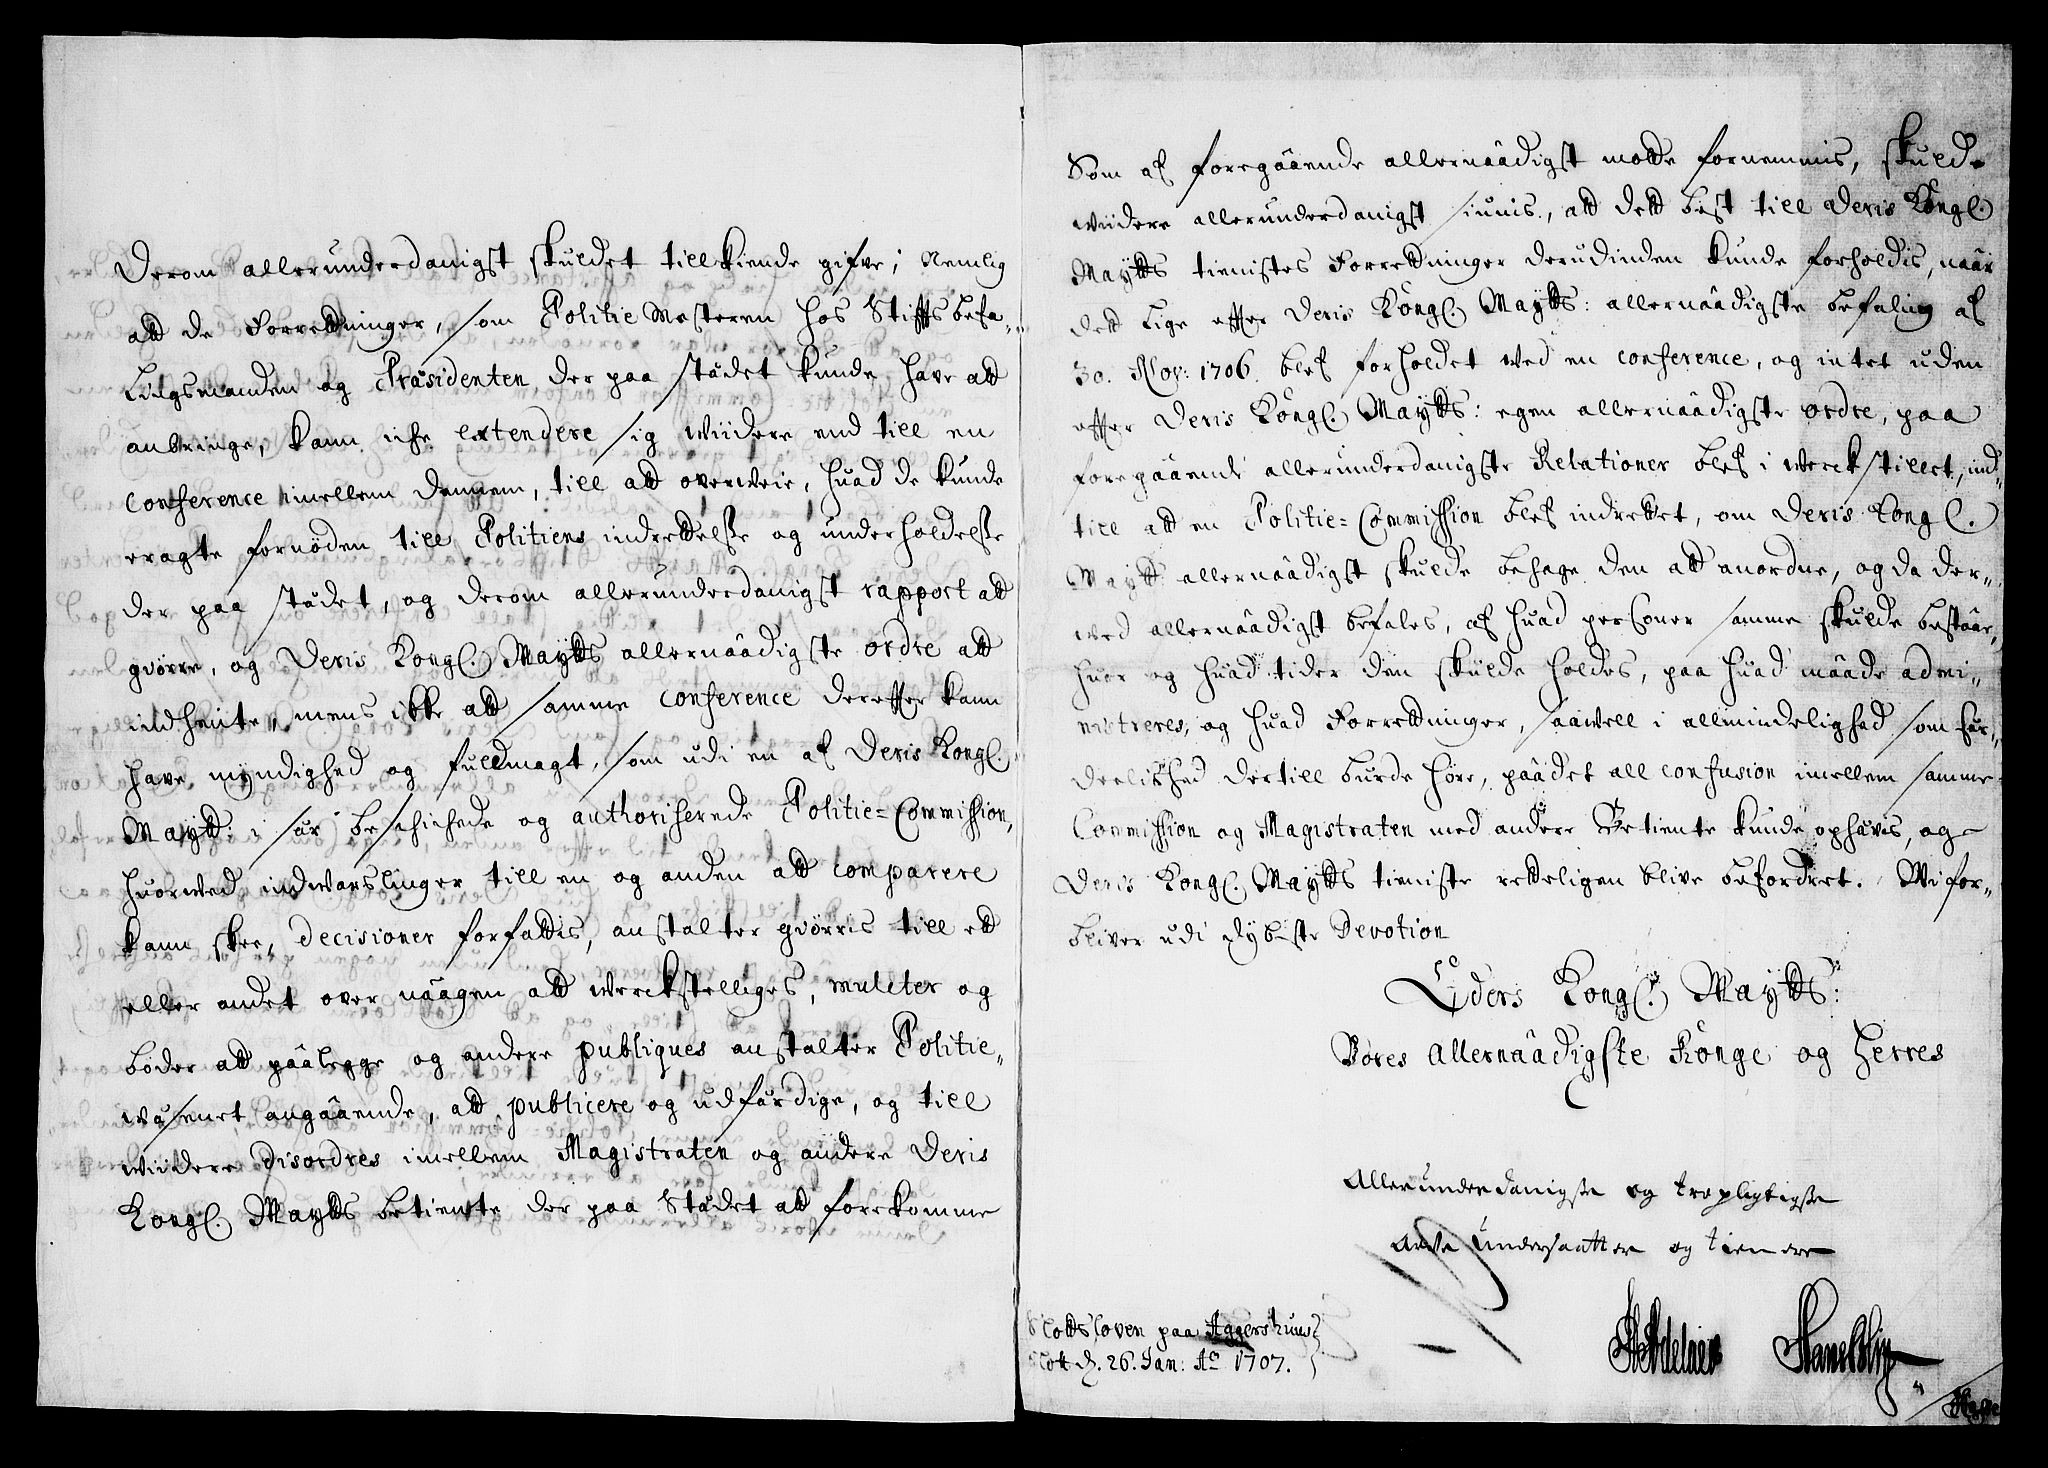 Derom allerunderdanigst skuldet tillkiende gifve; Nemlig
att de Forretninger, som Politie Mesteren hos Stiffts befa-
lingsmanden og Præsidenten der paa stædet kunde have att
anbringe, kann iche extendere sig wiidere end till en
Conference imellem dennem, till att overveie, huad de kunde
eragte fornöden till Politiens indrettelsse og underholdelsse
der paa stædet, og derom allerunderdanigst rapport att
giörre, og Deris Kongl. Maytts allernaadigste ordre att
indhente, mens ikke att samme Conference dereffter kann
have myndighed og fuldmagt, som udi en af Deris Kongl.
Maytt: sær beschichede og authoriserede Politie-Commission,
huorved indvarslinger till en og anden att Comparere
kann skee, Decisioner forfattis, anstalter giörris till ett
eller andet over naagen att werckstelliges, mulcter og
böder att paalegge og andere publiques anstalter Politie-
wæsenet angaaende, att publicere og udfærdige, og till
wiidere disordres imellem Magistraten og andere Deris
Kongl. Maytts betiente der paa Stædet att forekomme
Som af foregaaende allernaadigst motte fornemmis, skulde
wiidere allerunderdanigst siunis, att dett best till Deris Kongl.
Maytts tienistes Forretninger derudinden kunde forholdis, naar
dett lige effter Deris Kongl. Maytts: allernaadigste befaling af
30. Nov: 1706. blef forholdet ved en Conference, og intet uden
effter Deris Kongl. Maytts: egen allernaadigste ordre, paa
foregaaende allerunderdanigste Relationer blef i werckstillet, ind-
till att en Politie-Commission blef indrettet, om Deris Kongl.
Maytt: allernaadigst skulde behage den att anordne, og da der-
wed allernaadigst befales, af huad personer samme skulde bestaae,
huor og huad tider den skulde holdes, paa huad maade admi-
nistreres, og huad Forretninger, saavell i allmindelighed som sær-
deelished dertill burde höre, paadet all confusion imellem samme
Commission og Magistraten med andere Betiente kunde ophævis, og
Deris Kongl. Maytts tieniste retteligen blive befordret. Wi for-
bliver udi dybeste Devotion
Eders Kongl. Maytts:
Vores Allernaadigste Konge og Herres
Allerunderdanigste og troepligtigste
Arve Undersaatter og tienere
Slotts loven paa Aggershuus
Slott d. 26. Jan: Ao 1707.